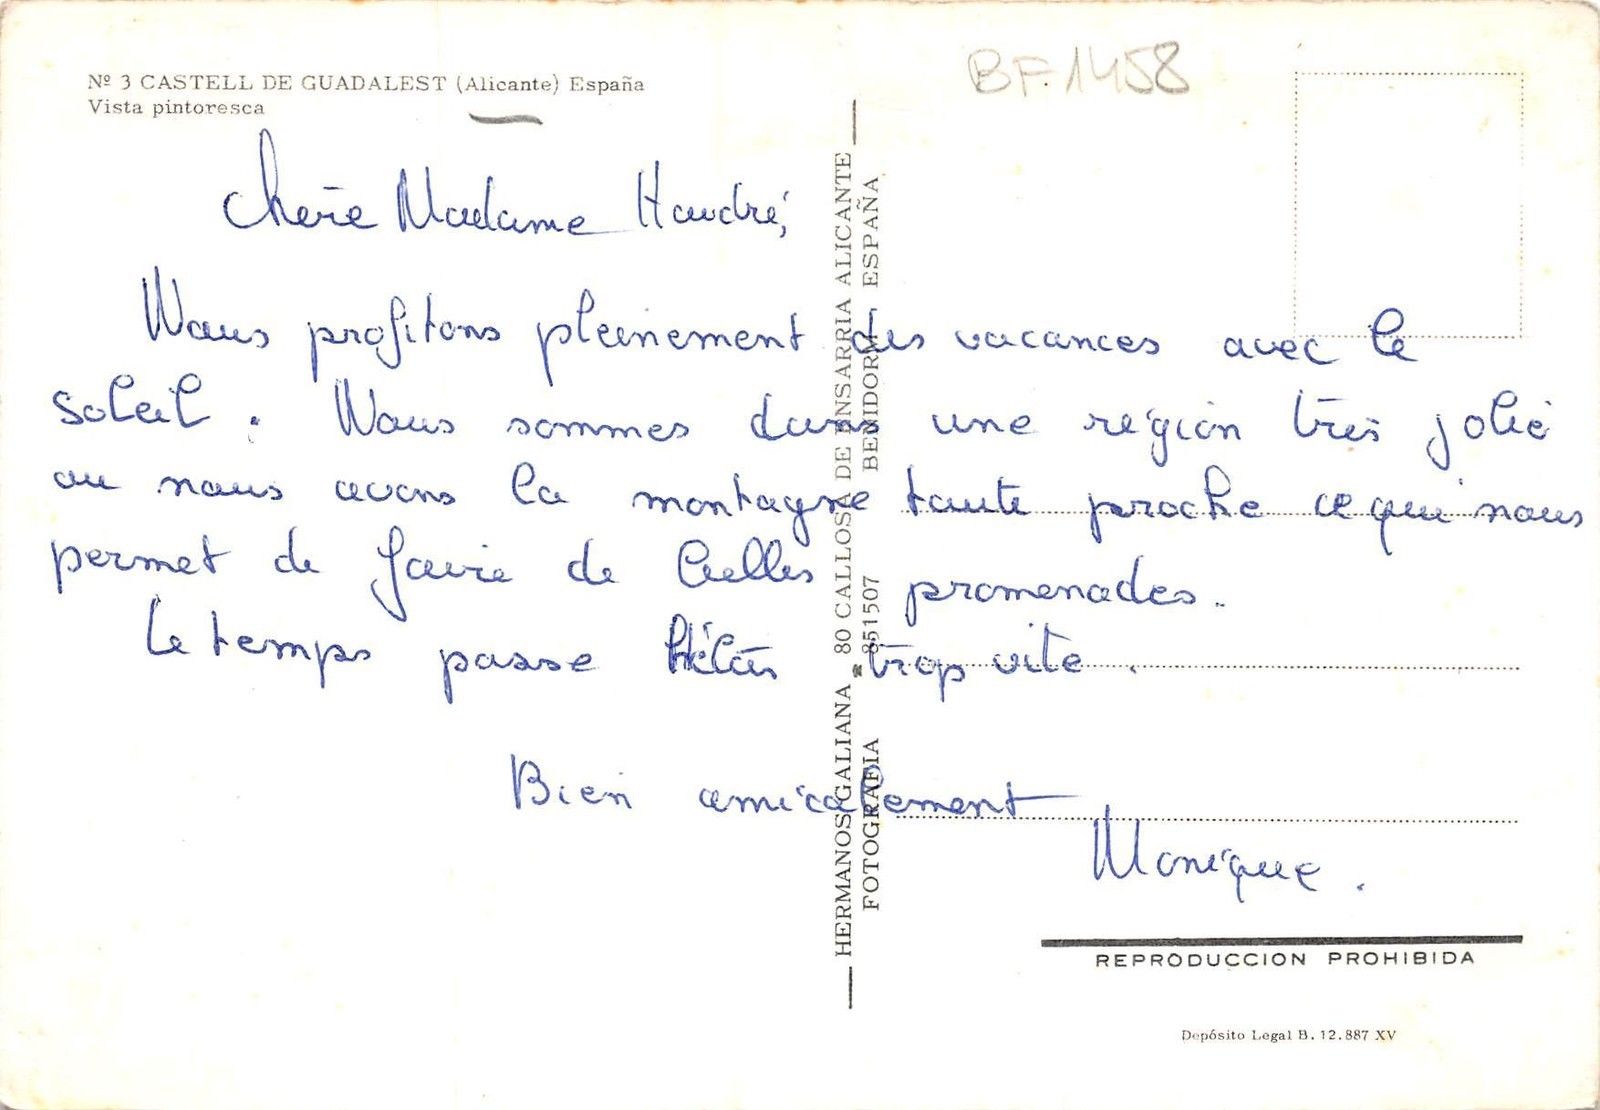 Nº 3 CASTELL DE GUADALEST (Alicante) España
Vista pintoresca
BF.1458
Chère Madame Haudré,
Nous profitons pleinement des vacances avec le
soleil. Nous sommes dans une région très jolie
ou nous avons la montagne toute proche ce qui nous
permet de faire de belles promenades.
Le temps passe hélas trop vite.
Bien amicalement
Monique.
HERMANOS GALIANA 80 CALLOSA DE ENSARRIA ALICANTE
FOTOGRAFIA ☎ 851507 BENIDORM ESPAÑA
REPRODUCCION PROHIBIDA
Depósito Legal B. 12.887 XV